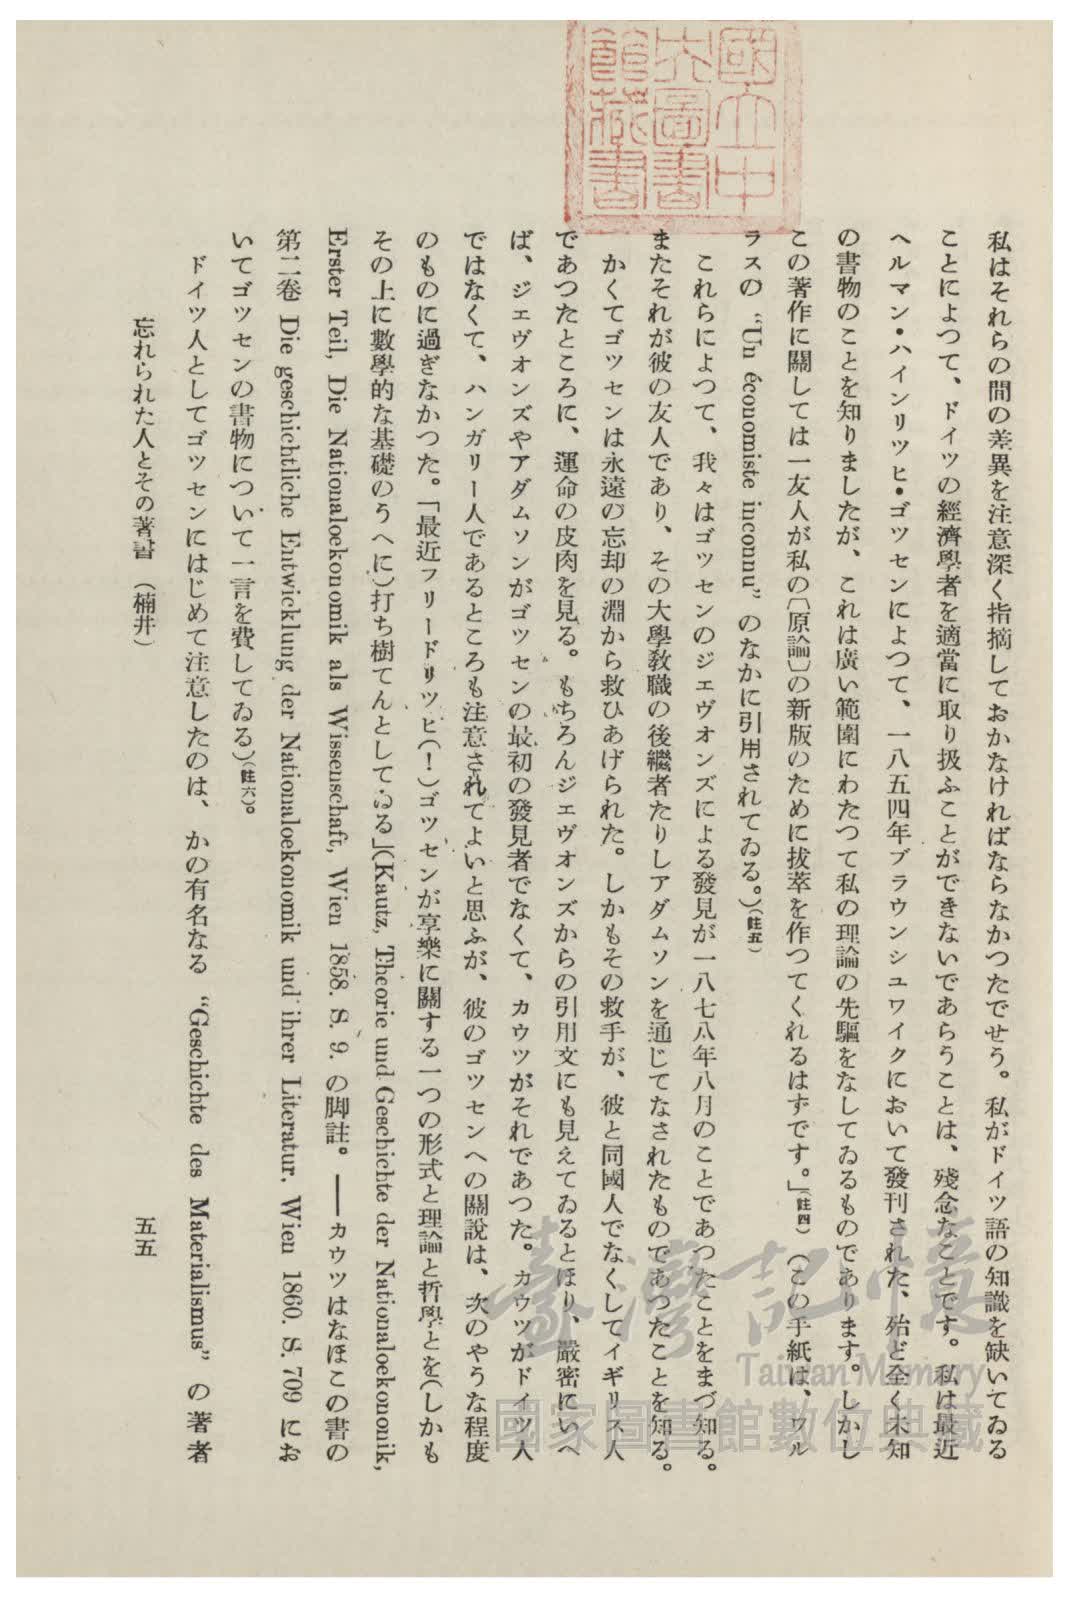 國立中
央圖書
館藏書
私はそれらの間の差異を注意深く指摘しておかなければならなかつたでせう。私がドイツ語の知識を缺いてゐる
ことによつて、ドイツの經濟學者を適當に取り扱ふことができないであらうことは、殘念なことです。私は最近
ヘルマン・ハインリツヒ・ゴツセンによつて、一八五四年ブラウンシユワイクにおいて發刊された、殆ど全く未知
の書物のことを知りましたが、これは廣い範圍にわたつて私の理論の先驅をなしてゐるものであります。しかし
この著作に關しては一友人が私の〔原論〕の新版のために拔萃を作つてくれるはずです。」(註四)(この手紙は、ワル
ラスの “Un économiste inconnu” のなかに引用されてゐる。)(註五)
これらによつて、我々はゴツセンのジエヴオンズによる發見が一八七八年八月のことであつたことをまづ知る。
またそれが彼の友人であり、その大學敎職の後繼者たりしアダムソンを通じてなされたものであつたことを知る。
かくてゴツセンは永遠の忘却の淵から救ひあげられた。しかもその救手が、彼と同國人でなくしてイギリス人
であつたところに、運命の皮肉を見る。もちろんジエヴオンズからの引用文にも見えてゐるとほり、嚴密にいへ
ば、ジエヴオンズやアダムソンがゴツセンの最初の發見者でなくて、カウツがそれであつた。カウツがドイツ人
ではなくて、ハンガリー人であるところも注意されてよいと思ふが、彼のゴツセンへの關說は、次のやうな程度
のものに過ぎなかつた。「最近フリードリツヒ(!)ゴツセンが享樂に關する一つの形式と理論と哲學とを(しかも
その上に數學的な基礎のうへに)打ち樹てんとしてゐる」(Kautz, Theorie und Geschichte der Nationaloekonomik,
Erster Teil, Die Nationaloekonomik als Wissenschaft, Wien 1858. S. 9. の脚註。——カウツはなほこの書の
第二卷 Die geschichtliche Entwicklung der Nationaloekonomik und ihrer Literatur, Wien 1860. S. 709 にお
いてゴツセンの書物について一言を費してゐる)(註六)。
ドイツ人としてゴツセンにはじめて注意したのは、かの有名なる “Geschichte des Materialismus” の著者
忘れられた人とその著書(楠井)
五五
臺灣記憶
Taiwan Memory
國家圖書館數位典藏